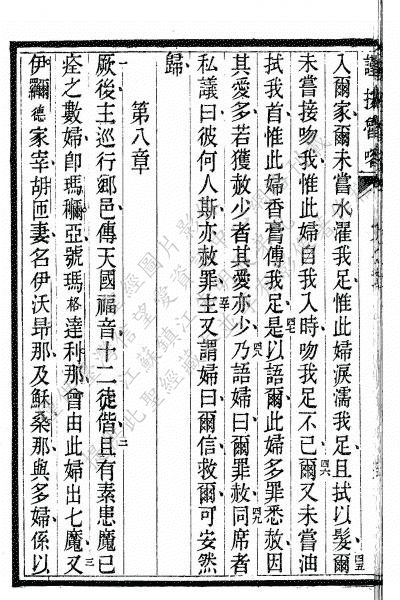 入爾家爾未嘗水濯我足惟此婦淚濡我足且拭以髮爾四五
未嘗接吻我惟此婦自我入時吻我足不已四六爾又未嘗油
拭我首惟此婦香膏傅我足四七是以語爾此婦多罪悉赦因
其愛多若獲赦少者其愛亦少四八乃語婦曰爾罪赦四九同席者
私議曰彼何人斯亦赦罪五十主又謂婦曰爾信救爾可安然
歸
第八章
一厥後主巡行鄉邑傳天國福音十二徒偕二且有素患魔已
痊之數婦卽瑪亞號瑪格達利那曾由此婦出七魔三又
伊德家宰胡匝妻名伊沃昂那及穌桑那與多婦係以